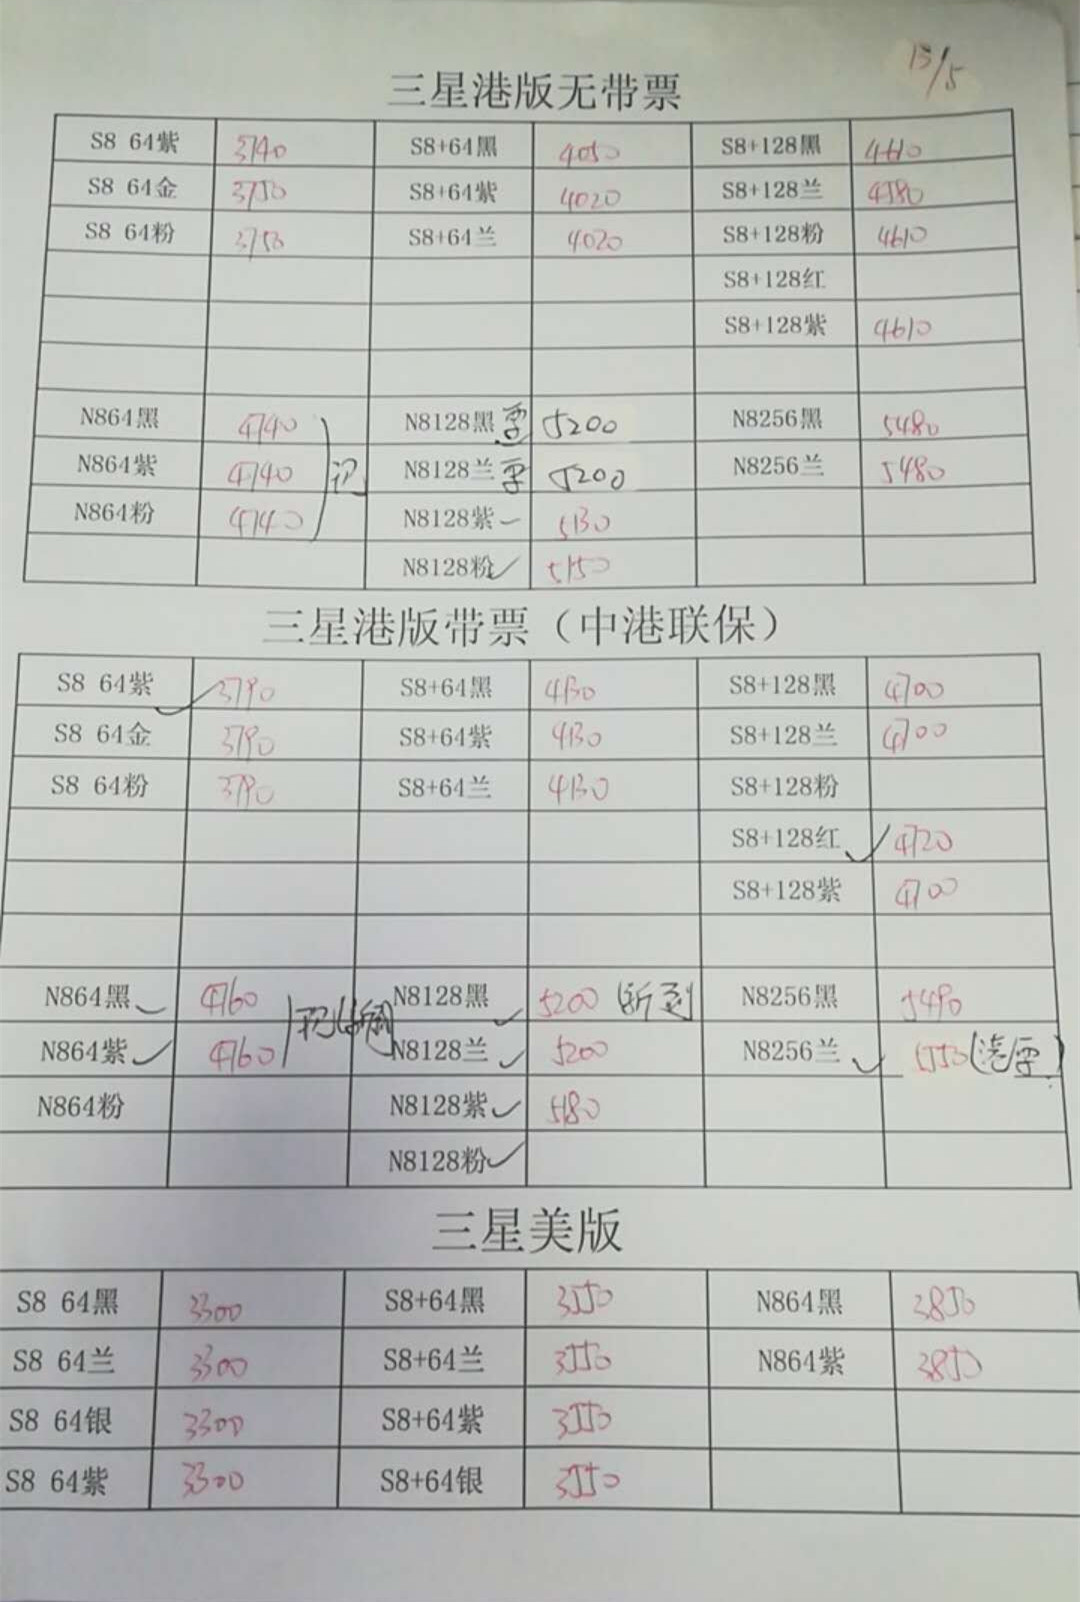 13/5
三星港版无带票
S8 64紫 3740 S8+64黑 4050 S8+128黑 4610
S8 64金 3750 S8+64紫 4020 S8+128兰 4580
S8 64粉 3750 S8+64兰 4020 S8+128粉 4610
S8+128红
S8+128紫 4610
N864黑 4740 N8128黑 5200 N8256黑 5480
N864紫 4740 N8128兰 5200 N8256兰 5480
N864粉 4740 N8128紫 5130
N8128粉 5150
三星港版带票（中港联保）
S8 64紫 3790 S8+64黑 4130 S8+128黑 4700
S8 64金 3790 S8+64紫 4130 S8+128兰 4700
S8 64粉 3790 S8+64兰 4130 S8+128粉
S8+128红 4720
S8+128紫 4700
N864黑 4760 N8128黑 5200 N8256黑 5490
N864紫 4760 N8128兰 5200 N8256兰 5550
N864粉 N8128紫 5180
N8128粉
三星美版
S8 64黑 3300 S8+64黑 3550 N864黑 3850
S8 64兰 3300 S8+64兰 3550 N864紫 3850
S8 64银 3300 S8+64紫 3550
S8 64紫 3300 S8+64银 3550